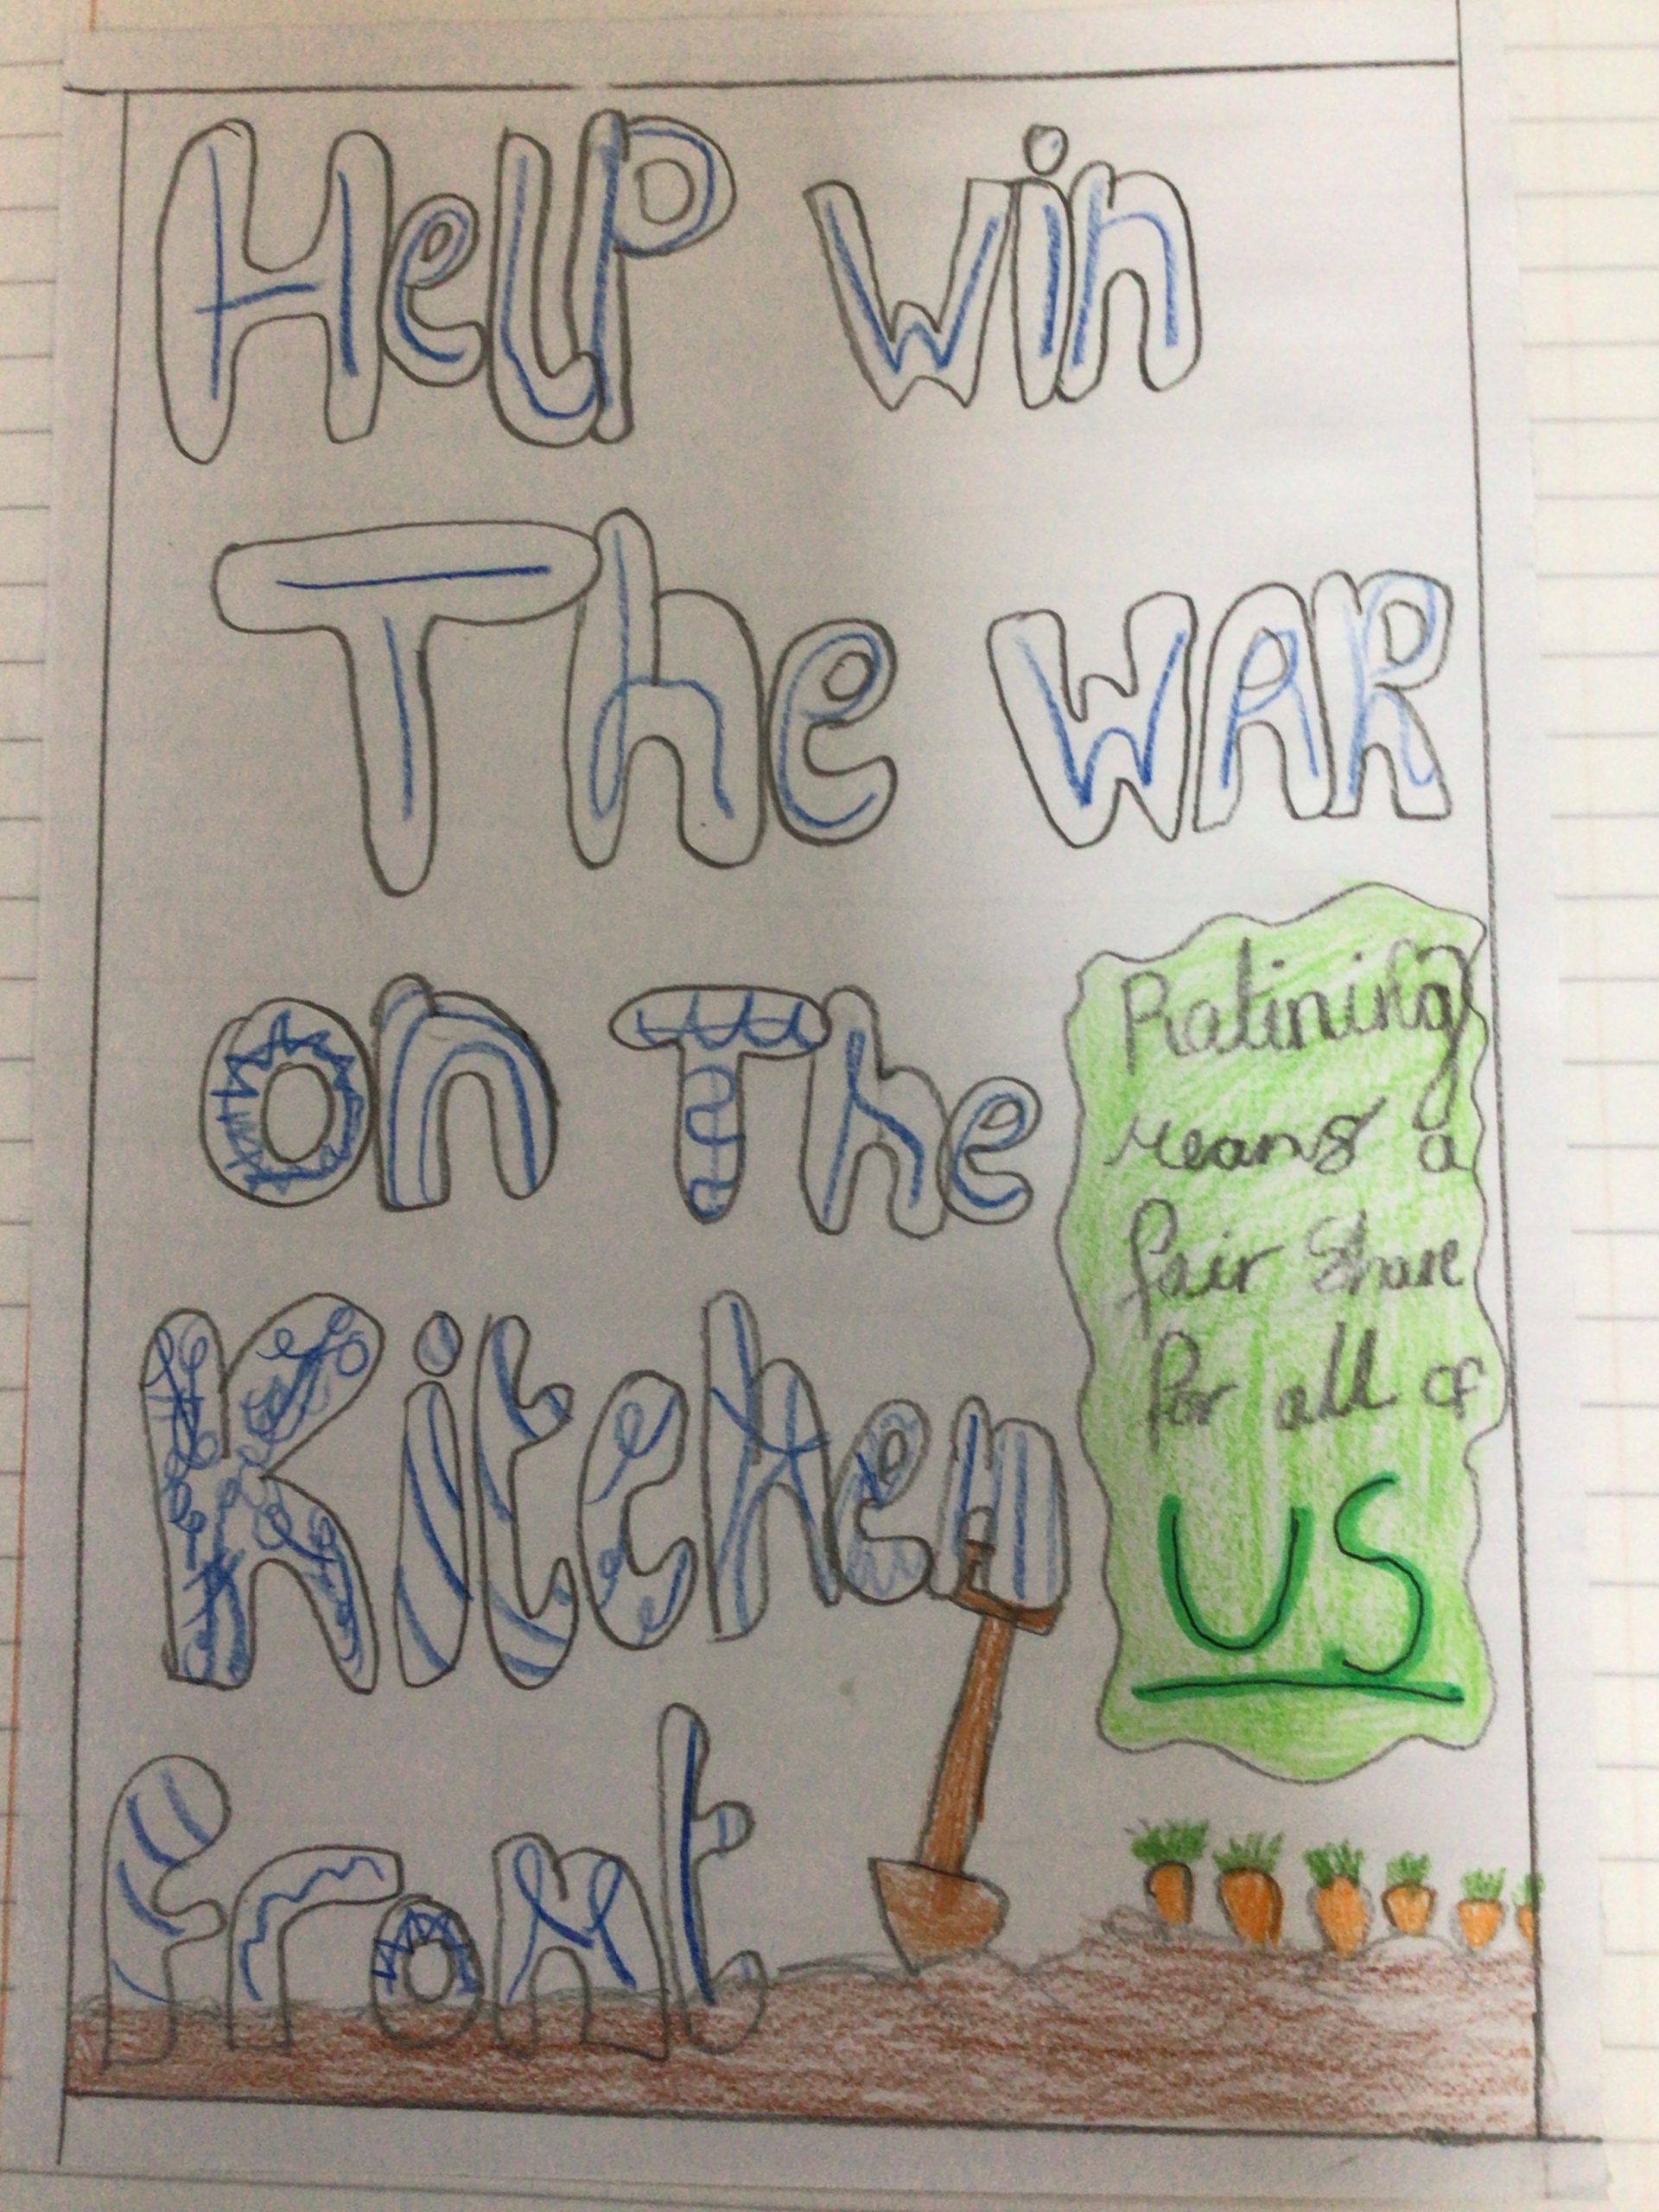 Help win
The WAR
on The
Kitchen
front
Ratining
means a
fair share
for all of
US